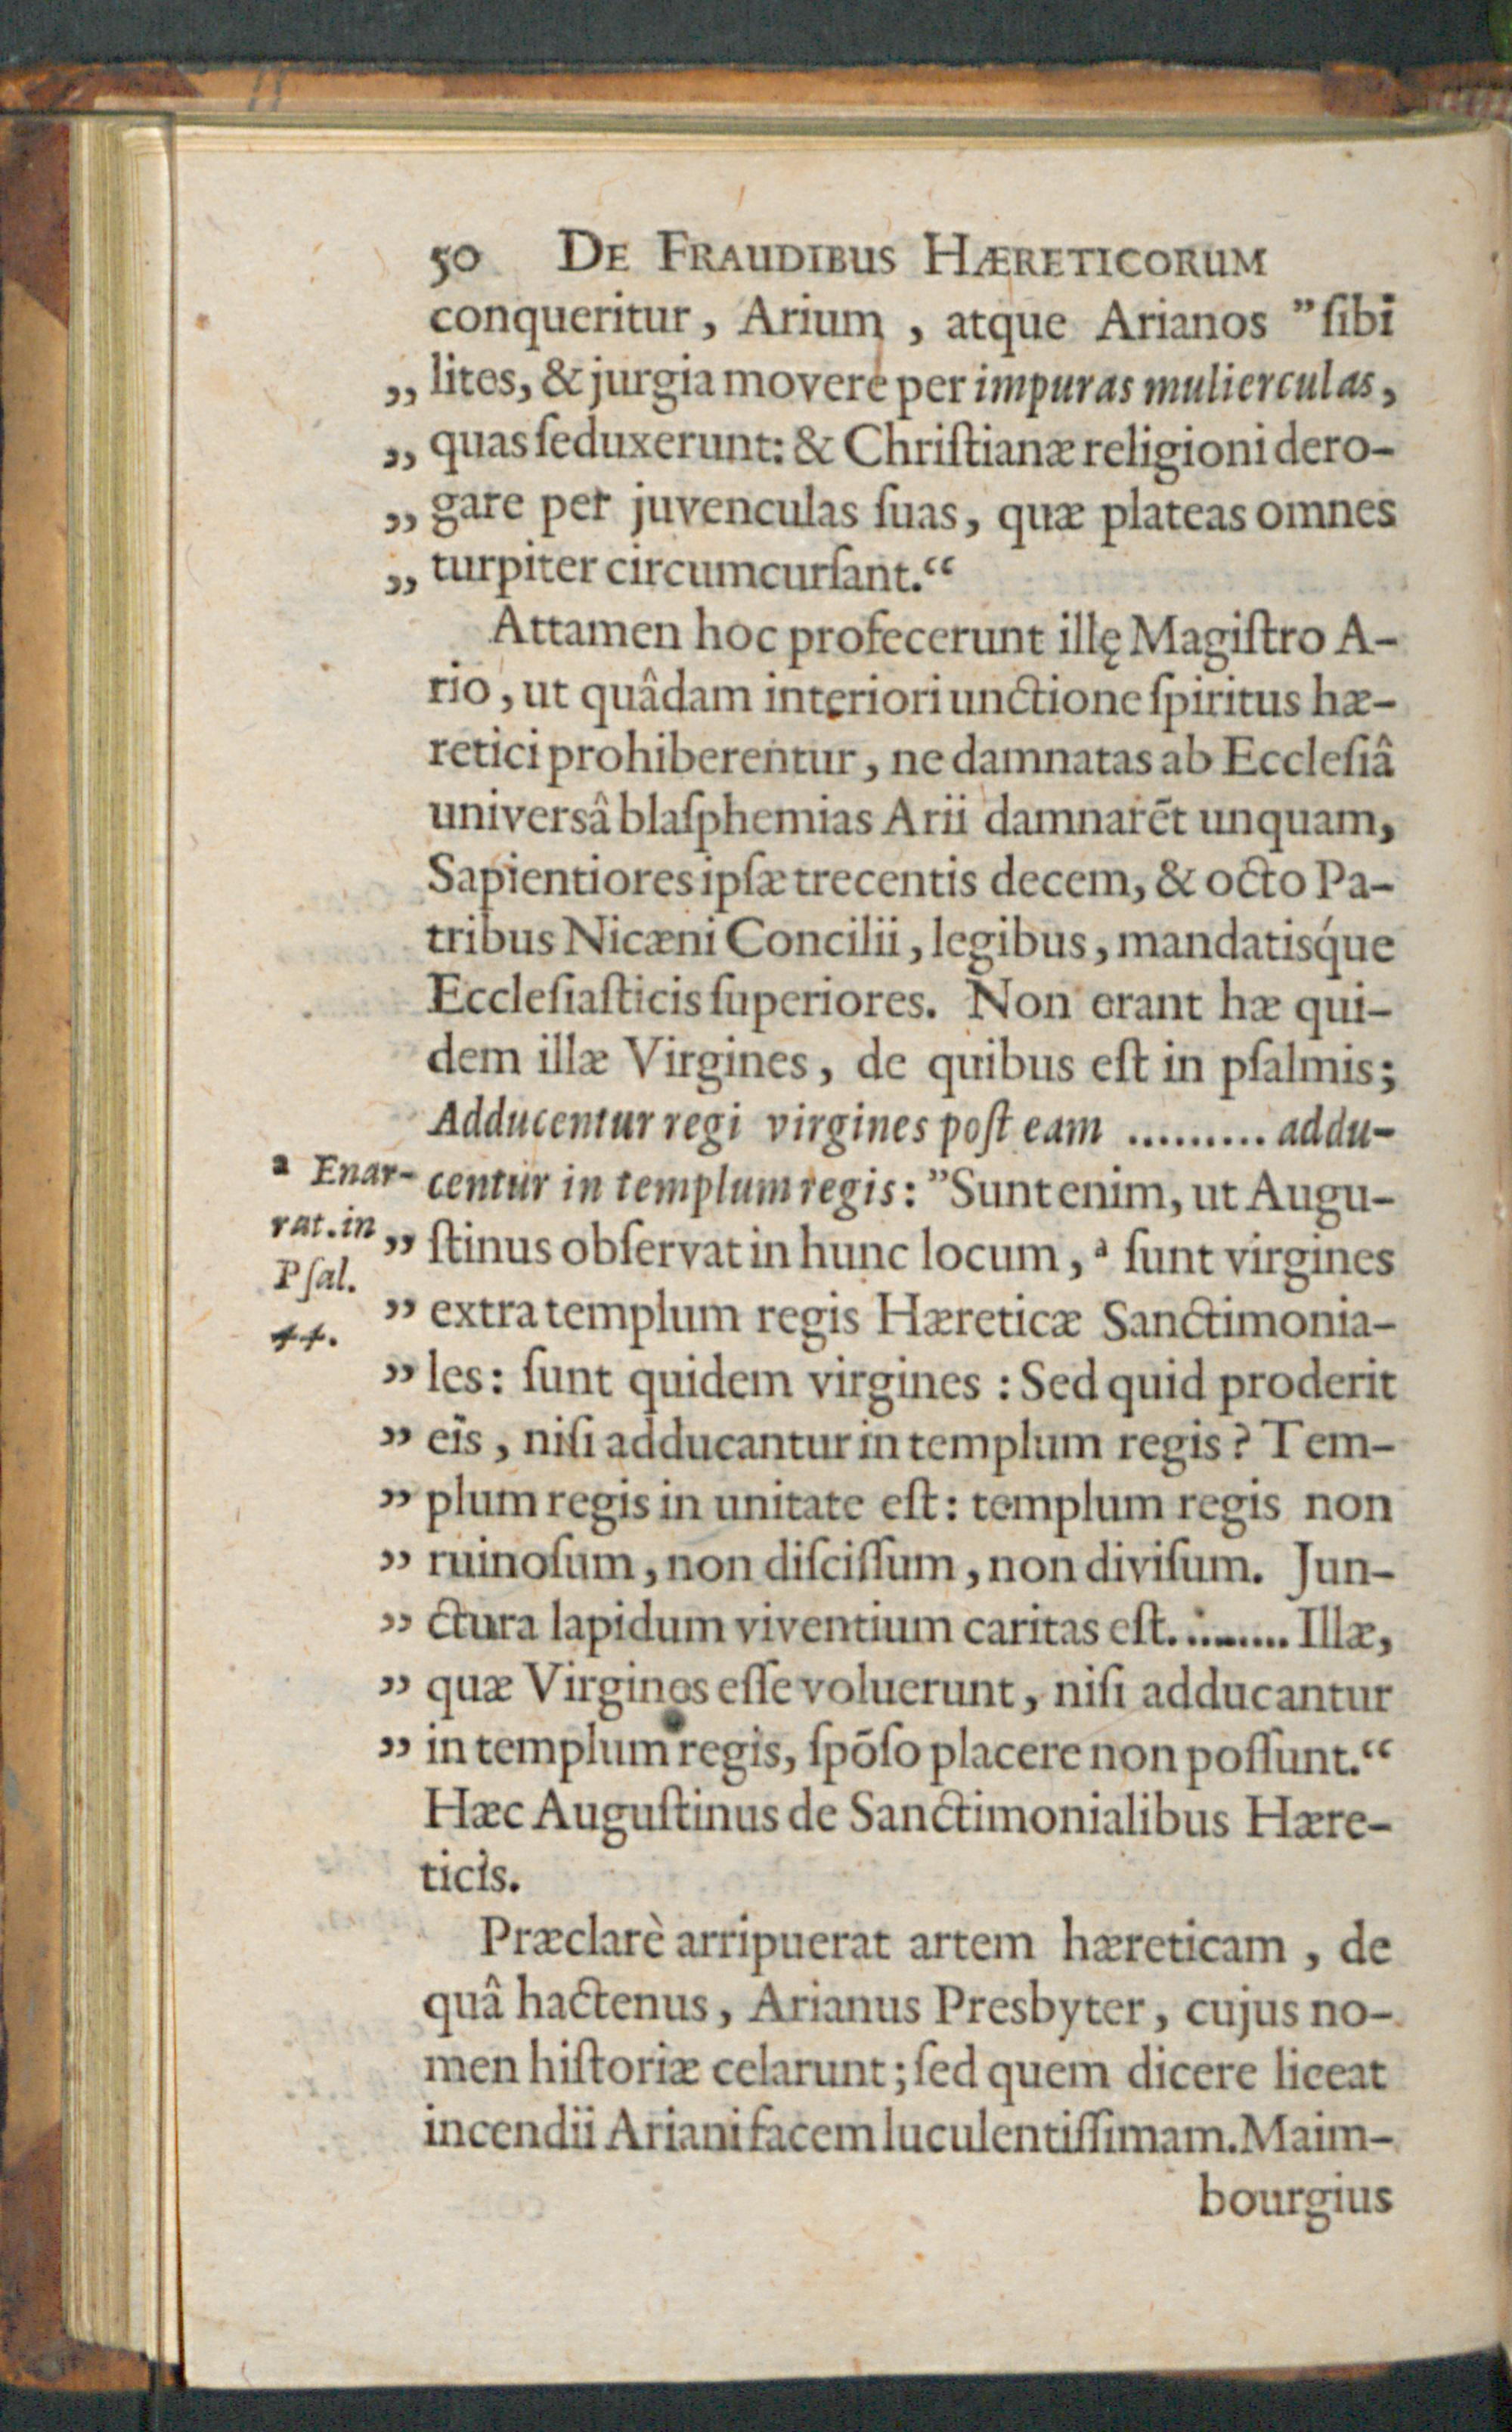 50 DE FRAUDIBUS HÆRETICORUM
conqueritur, Arium, atque Arianos ”ſibi
„ lites, & jurgia movere per impuras mulierculas,
„ quas ſeduxerunt: & Chriſtianæ religioni dero-
„ gare per juvenculas ſuas, quæ plateas omnes
„ turpiter circumcurſant.“
Attamen hoc profecerunt illę Magiſtro A-
rio, ut quâdam interiori unctione ſpiritus hæ-
retici prohiberentur, ne damnatas ab Eccleſiâ
universâ blaſphemias Arii damnarēt unquam,
Sapientiores ipſæ trecentis decem, & octo Pa-
tribus Nicæni Concilii, legibus, mandatisq́ue
Eccleſiaſticis ſuperiores. Non erant hæ qui-
dem illæ Virgines, de quibus eſt in pſalmis;
Adducentur regi virgines poſt eam ......... addu-
centur in templum regis: ”Sunt enim, ut Augu-
„ ſtinus obſervat in hunc locum, ª ſunt virgines
” extra templum regis Hæreticæ Sanctimonia-
” les: ſunt quidem virgines: Sed quid proderit
” eis, niſi adducantur in templum regis? Tem-
” plum regis in unitate eſt: templum regis non
” ruinoſum, non diſciſſum, non diviſum. Jun-
” ctura lapidum viventium caritas eſt......... Illæ,
” quæ Virgines eſſe voluerunt, niſi adducantur
” in templum regis, ſpōſo placere non poſſunt.“
Hæc Auguſtinus de Sanctimonialibus Hære-
ticis.
Præclarè arripuerat artem hæreticam, de
quâ hactenus, Arianus Presbyter, cujus no-
men hiſtoriæ celarunt; ſed quem dicere liceat
incendii Ariani facem luculentiſſimam. Maim-
bourgius
ª Enar-
rat. in
Pſal.
44.